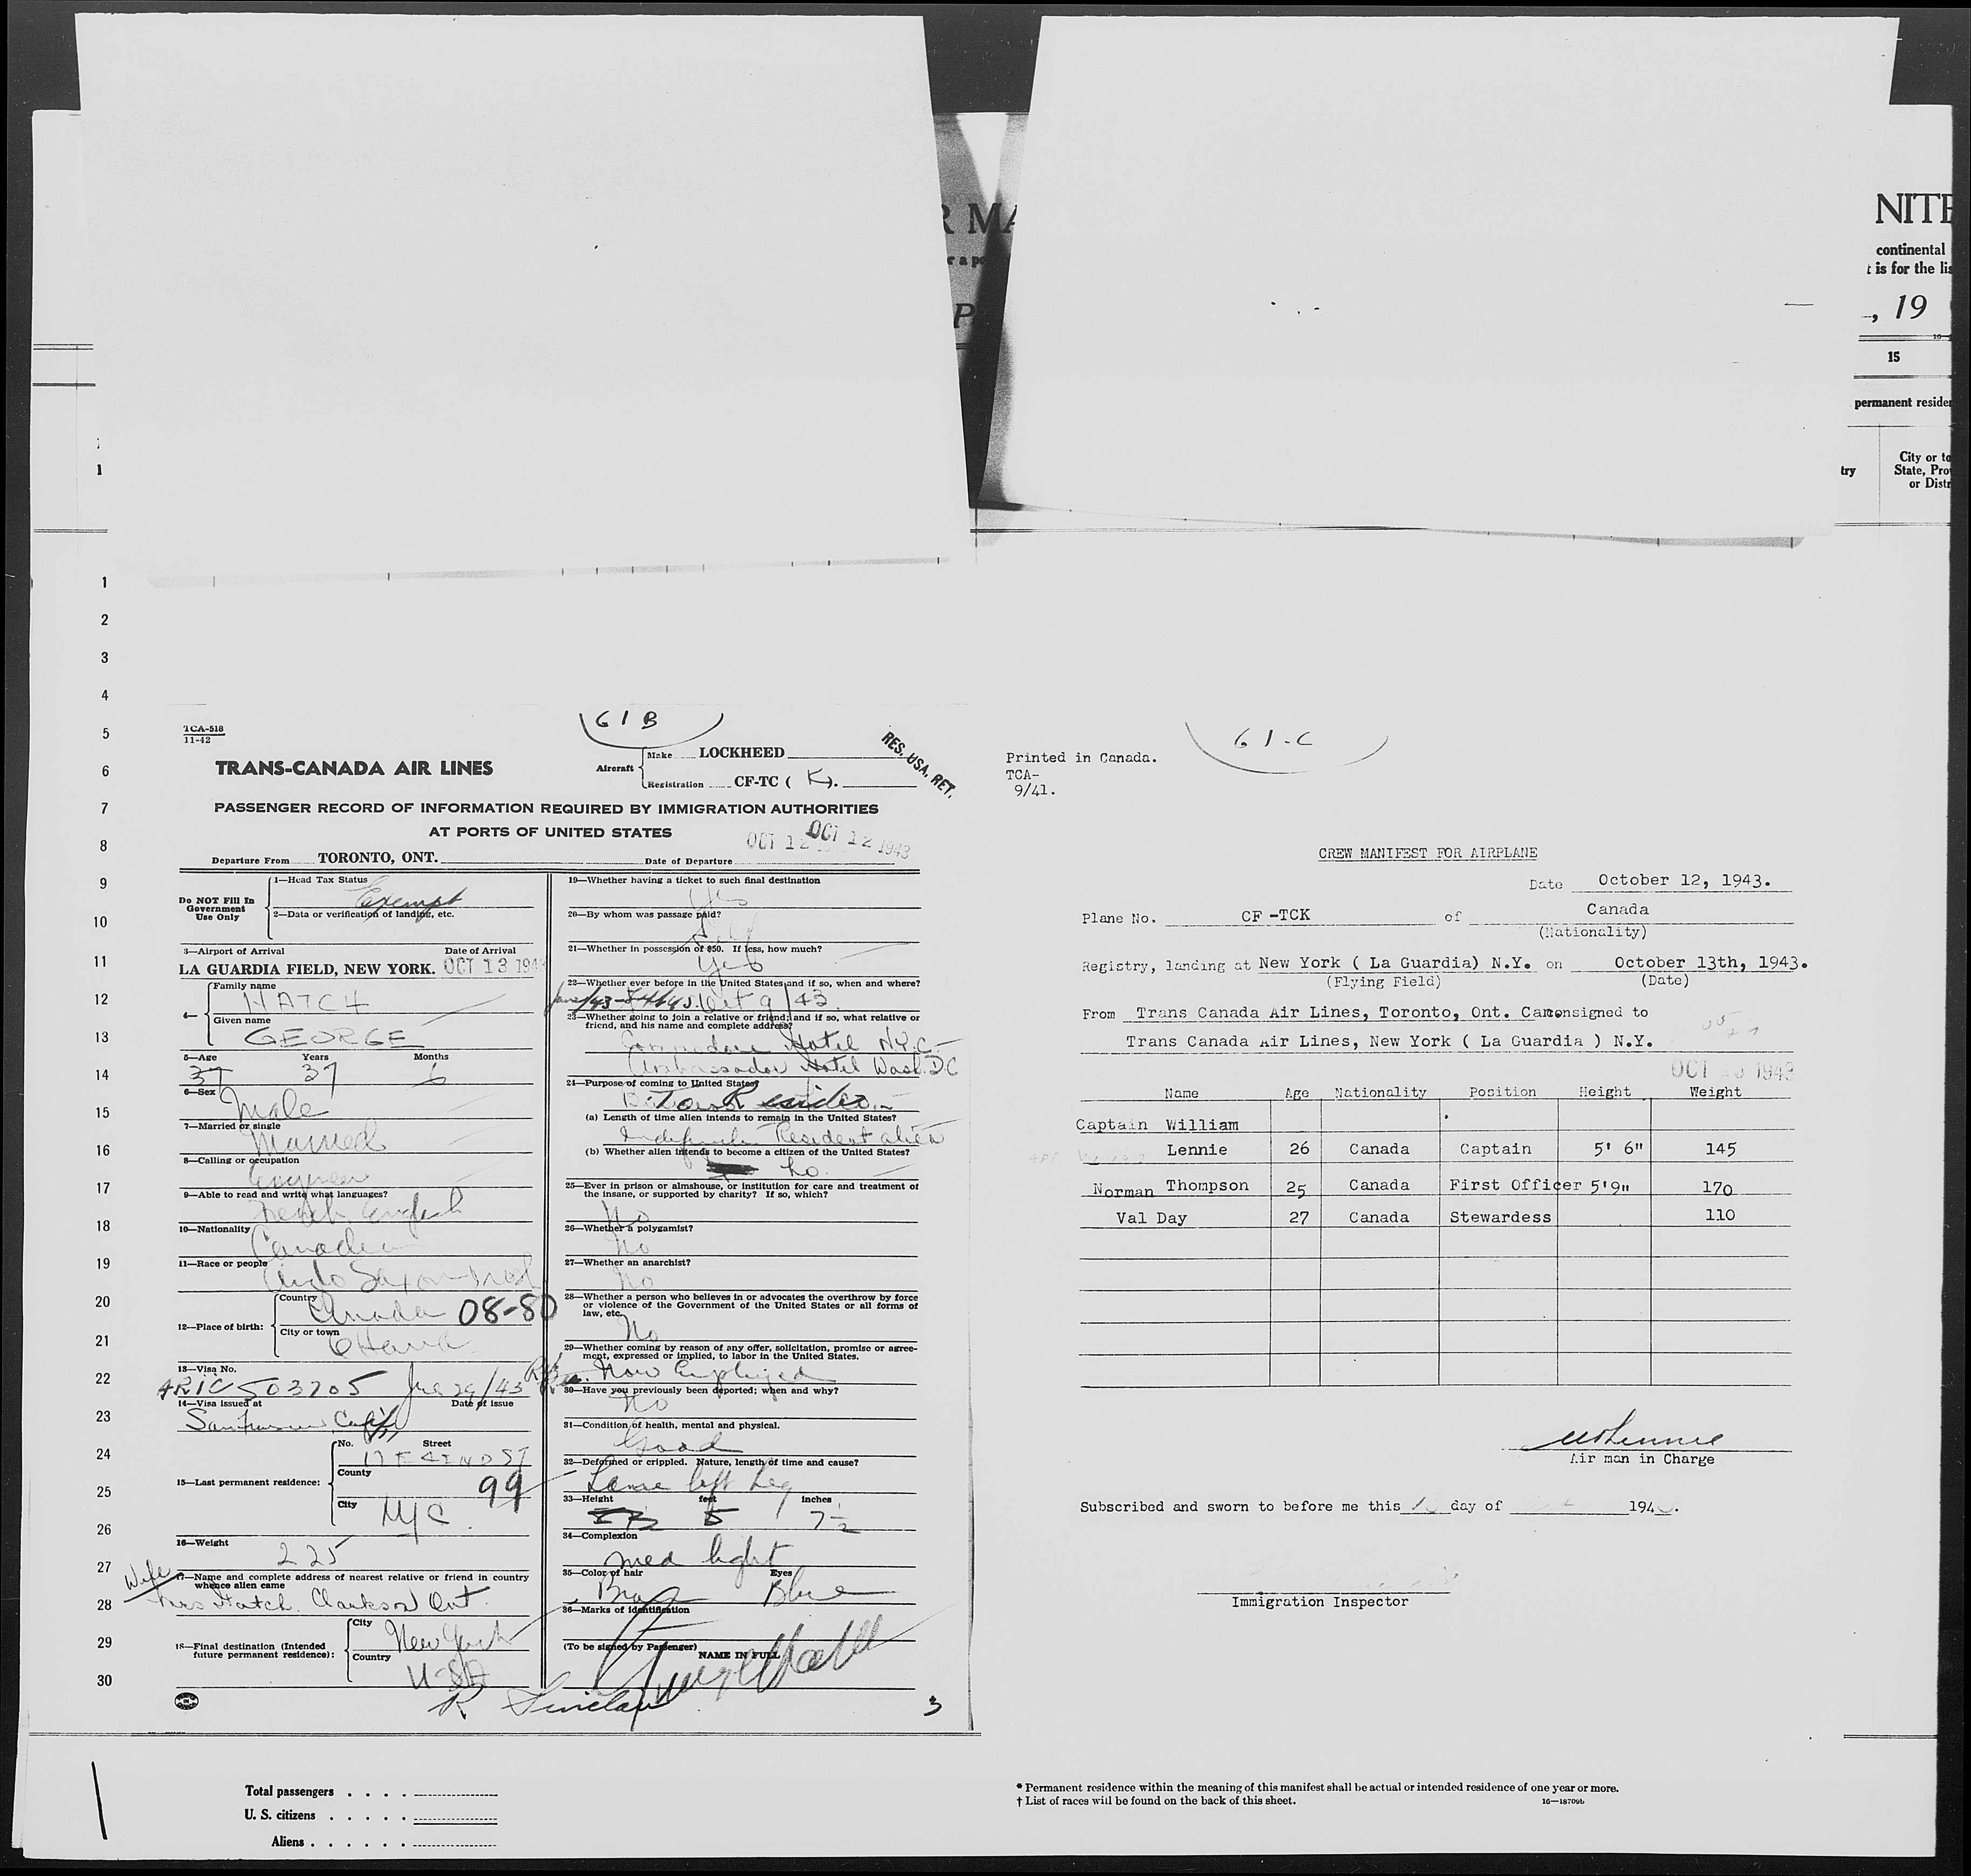 R MA
r a pe
P
NITE
continental
t is for the lis
, 19
15
permanent reside
try
City or to
State, Pro
or Distr
1
2
3
4
5
6
7
8
9
10
11
12
13
14
15
16
17
18
19
20
21
22
23
24
25
26
27
28
29
30
61B
TCA-518
11-42
TRANS-CANADA AIR LINES
Aircraft
Make LOCKHEED
Registration CF-TC ( K ).
RES. USA. RET.
PASSENGER RECORD OF INFORMATION REQUIRED BY IMMIGRATION AUTHORITIES
AT PORTS OF UNITED STATES
OCT 12 OCT 12 1943
Departure From TORONTO, ONT. Date of Departure
Do NOT Fill In
Government
Use Only
1—Head Tax Status
Exempt
2—Data or verification of landing, etc.
3—Airport of Arrival Date of Arrival
LA GUARDIA FIELD, NEW YORK. OCT 13 194
4—
Family name
HATCH
Given name
GEORGE
5—Age Years Months
37 37 6
6—Sex
Male
7—Married or single
Married
8—Calling or occupation
Engineer
9—Able to read and write what languages?
French English
10—Nationality
Canadian
11—Race or people
12—Place of birth:
Country
Canada 08-80
City or town
Ottawa
13—Visa No.
ARIC 503205 29/43
14—Visa issued at Date of issue
Calif
15—Last permanent residence:
No. Street
17 E 42ND ST
County
99
City
NYC
16—Weight
225
Wife
17—Name and complete address of nearest relative or friend in country
whence alien came
Mrs Hatch Clarkson Ont.
18—Final destination (Intended
future permanent residence):
City
New York
Country
USA
19—Whether having a ticket to such final destination
Yes
20—By whom was passage paid?
Self
21—Whether in possession of $50. If less, how much?
Yes
22—Whether ever before in the United States and if so, when and where?
Oct 9/43
23—Whether going to join a relative or friend; and if so, what relative or
friend, and his name and complete address?
Commodore Hotel N.Y.C.
Ambassador Hotel Wash. DC
24—Purpose of coming to United States?
(a) Length of time alien intends to remain in the United States?
Resident alien
(b) Whether alien intends to become a citizen of the United States?
No.
25—Ever in prison or almshouse, or institution for care and treatment of
the insane, or supported by charity? If so, which?
No
26—Whether a polygamist?
No
27—Whether an anarchist?
No
28—Whether a person who believes in or advocates the overthrow by force
or violence of the Government of the United States or all forms of
law, etc.
No
29—Whether coming by reason of any offer, solicitation, promise or agree-
ment, expressed or implied, to labor in the United States.
Now Employed
30—Have you previously been deported; when and why?
No
31—Condition of health, mental and physical.
Good
32—Deformed or crippled. Nature, length of time and cause?
Lame left leg
33—Height feet inches
5 7½
34—Complexion
med light
35—Color of hair Eyes
Blue
36—Marks of identification
(To be signed by Passenger)
NAME IN FULL
R Sinclair
3
Total passengers
U. S. citizens
Aliens
61-C
Printed in Canada.
TCA-
9/41.
CREW MANIFEST FOR AIRPLANE
Date October 12, 1943.
Plane No. CF-TCK of Canada
(Nationality)
Registry, landing at New York ( La Guardia) N.Y. on October 13th, 1943.
(Flying Field) (Date)
From Trans Canada Air Lines, Toronto, Ont. Can consigned to
Trans Canada Air Lines, New York ( La Guardia ) N.Y.
OCT 1943
Name Age Nationality Position Height Weight
Captain William
Lennie 26 Canada Captain 5' 6" 145
Norman Thompson 25 Canada First Officer 5'9" 170
Val Day 27 Canada Stewardess 110
Air man in Charge
Subscribed and sworn to before me this day of 194 .
Immigration Inspector
* Permanent residence within the meaning of this manifest shall be actual or intended residence of one year or more.
† List of races will be found on the back of this sheet.
16—18709b